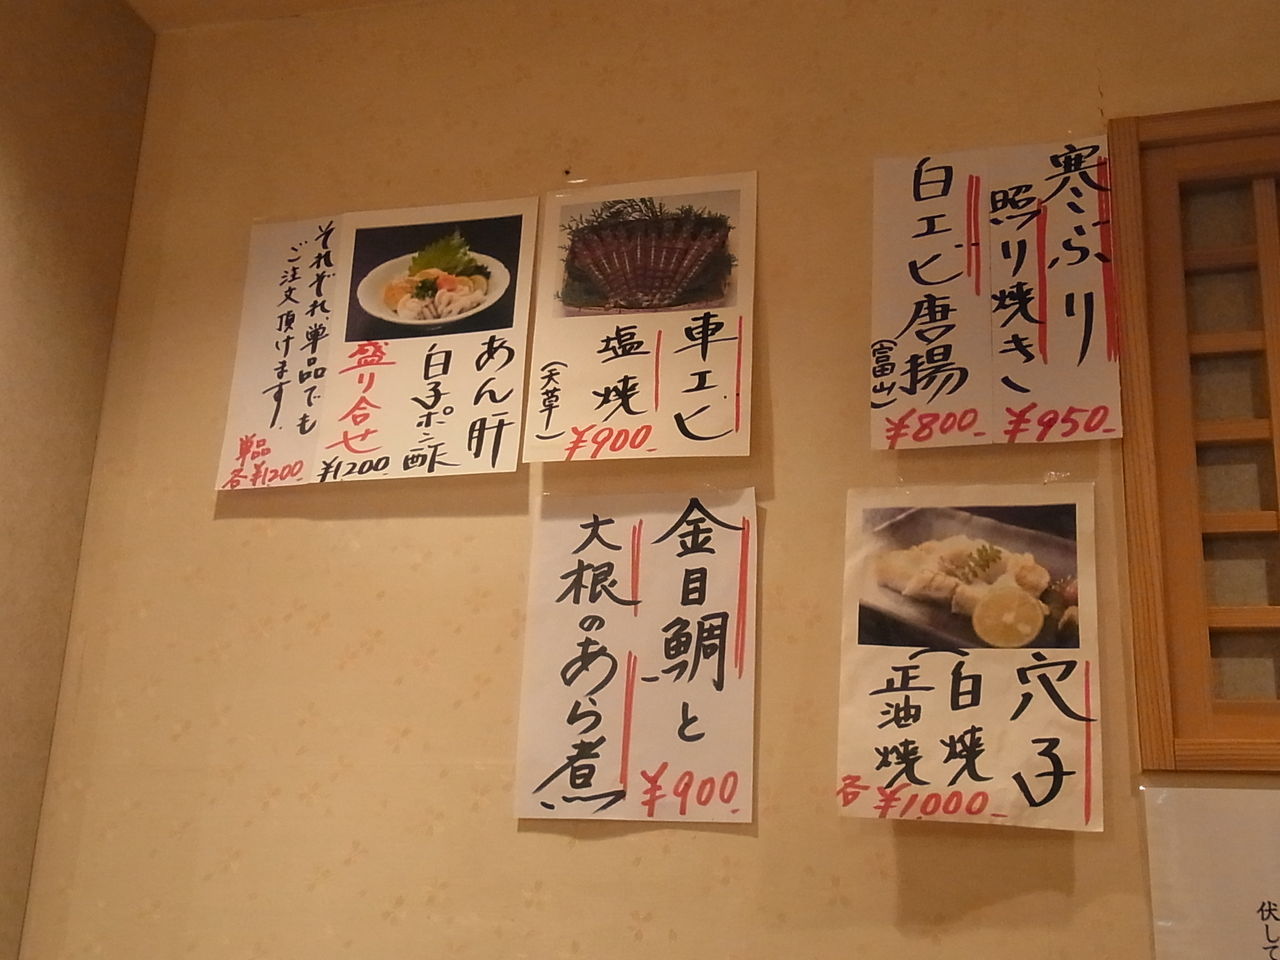 寒ぶり
照り焼き
¥950-
白エビ唐揚
(富山)
¥800-
車エビ
塩焼
(天草)
¥900-
あん肝
白子ポン酢
盛り合せ
¥1200-
それぞれ、単品でも
ご注文頂けます。
単品
各¥1200-
穴子
(白焼
正油焼
各¥1,000-
金目鯛と
大根のあら煮
¥900-
伏して